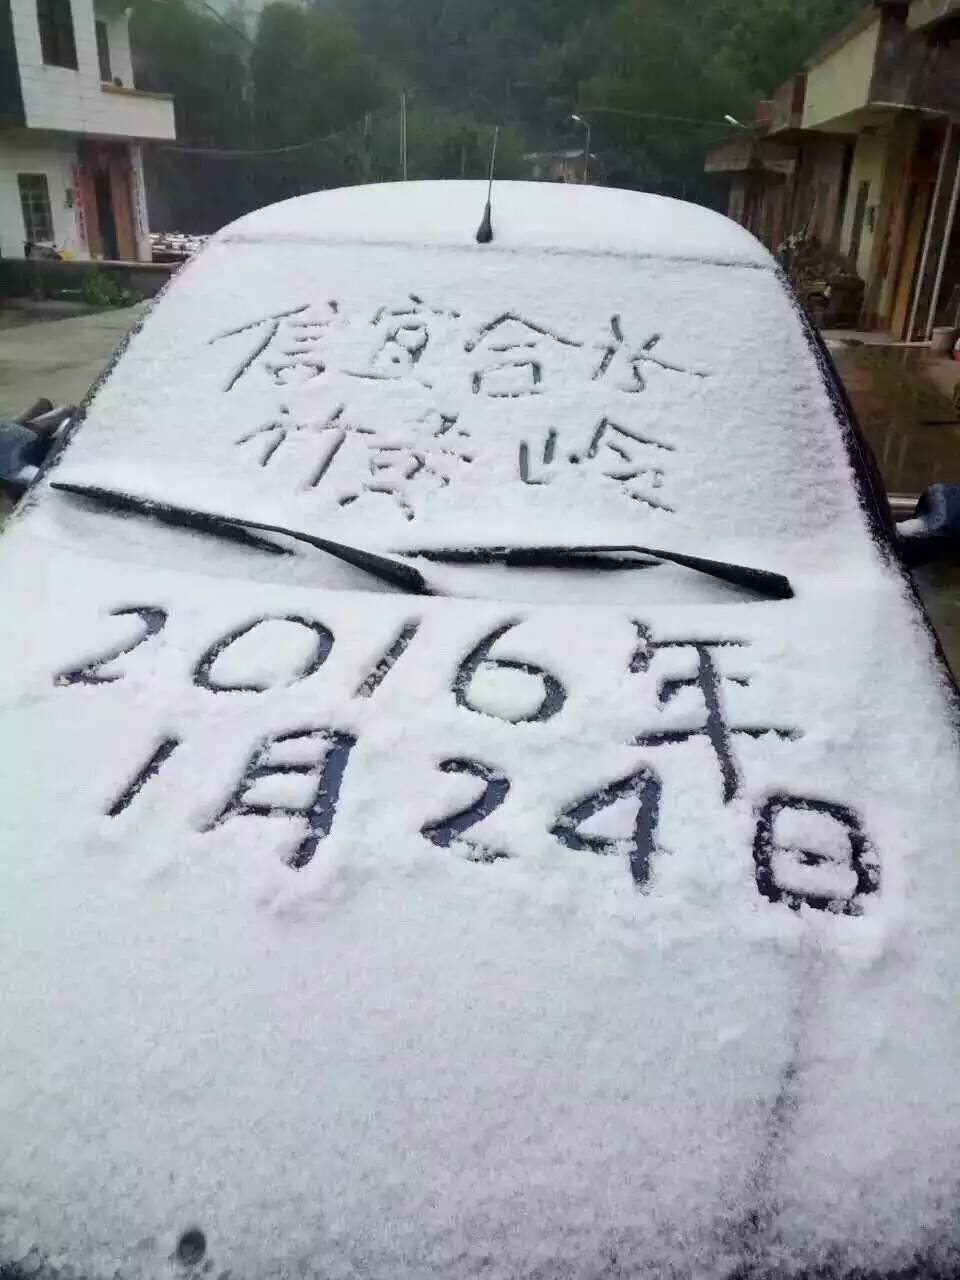 信宜合水
竹黄岭
2016年
1月24日